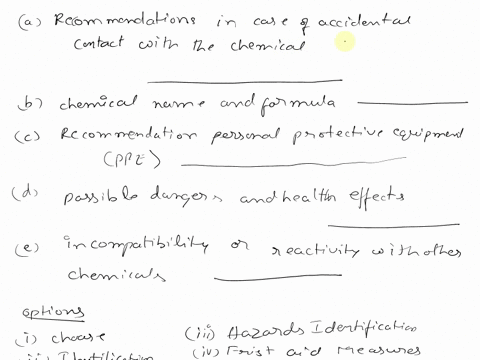 (a) Recommendations in case of accidental
contact with the chemical
b) chemical name and formula
(c) Recommendation personal protective equipment
(PPE)
(d) possible dangers and health effects
(e) incompatibility or reactivity with other
chemicals
options
(i) choose (iii) Hazards Identification
(ii) Identification (iv) Frist aid measures